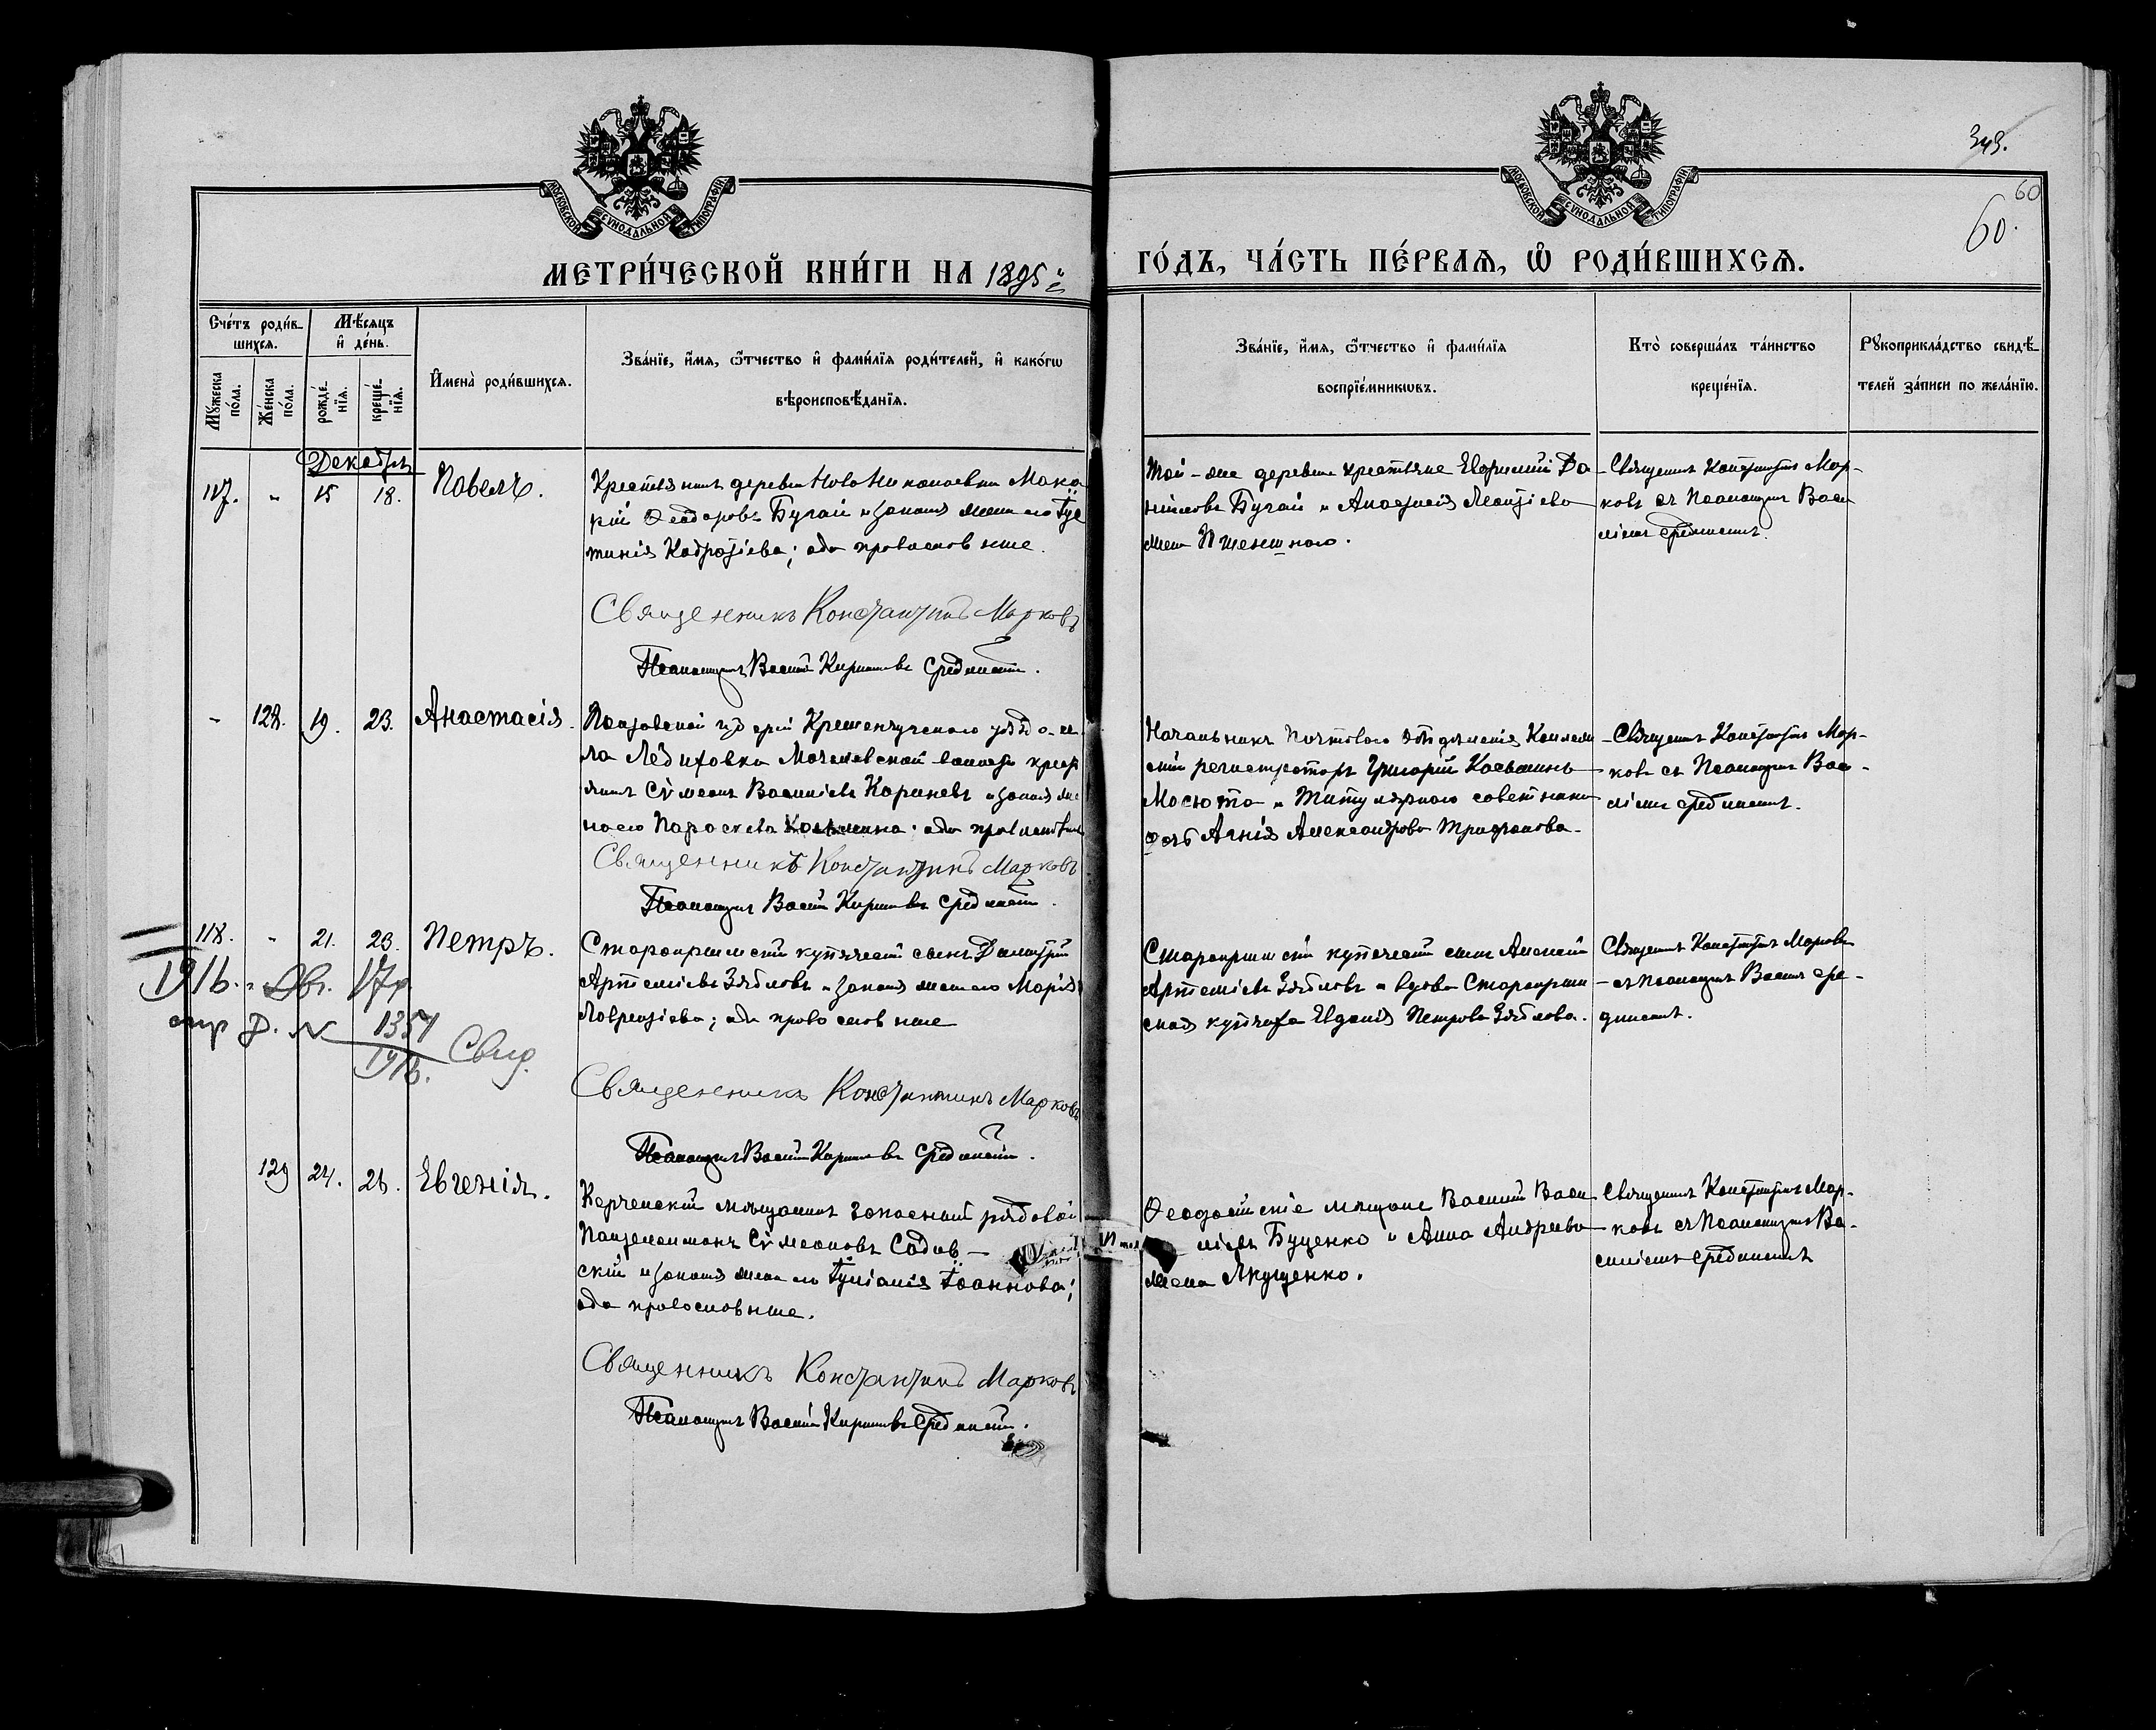 343.
60
60.
МОСКОВСКОЙ СѴНОДАЛЬНОЙ ТИПОГРАФІИ
МОСКОВСКОЙ СѴНОДАЛЬНОЙ ТИПОГРАФІИ
МЕТРИ́ЧЕСКОЙ КНИ́ГИ НА 1895й
ГО́ДЪ, ЧА́СТЬ ПЕ́РВАѦ, Ѡ҆ РОДИ́ВШИХСѦ.
Сче́тъ роди́в-
шихсѧ.
Мꙋ́жеска по́ла.
Же́нска по́ла.
Мѣ́сѧцъ
и҆ де́нь.
рожде́-
нїѧ.
креще́-
нїѧ.
И҆мена̀ роди́вшихсѧ.
Зва́нїе, и҆́мѧ, ѻ҆́тчество и҆ фами́лїѧ роди́телей, и҆ како́гѡ
вѣроисповѣ́данїѧ.
Зва́нїе, и҆́мѧ, ѻ҆́тчество и҆ фами́лїѧ
воспрїе́мникѡвъ.
Кто̀ соверша́лъ та́инство
креще́нїѧ.
Рꙋкоприкла́дство свидѣ́-
телей за́писи по жела́нїю.
Декабрь
117. „ 15 18. Павелъ.
Крестьянинъ деревни Ново Николаевки Мака
рій Ѳеодоровъ Бугай и законная жена его Іус
тинія Кодратіева; оба православные.
Священникъ Константинъ Марковъ
Псаломщикъ Василій Кирилловъ Срединскій.
Той-же деревни крестьяне Евфимій Да
ниловъ Бугай и Анастасія Леонтіева
жена Пшеничнаго.
Священникъ Константинъ Мар-
ковъ съ Псаломщик. Васи
ліемъ Срединскимъ.
- 128. 19. 23. Анастасія.
Полтавской губерніи Кременчугскаго уѣзда се-
ла Лѣдиховки волости крест
янинъ Сѵмеонъ Василіевъ Кориневъ и законная же
на его Параскева Косьмина; оба православные
Священникъ Константинъ Марковъ
Псаломщикъ Василій Кирилловъ Срединскій.
Начальникъ Почтоваго Отдѣленія Коллеж
скій регистраторъ Григорій Косьминъ
Масюта и Титулярнаго советника
дочь Агнія Александрова Трифонова.
Священникъ Константинъ Мар-
ковъ съ Псаломщик. Васи-
ліемъ Срединскимъ.
118. „ 21. 23. Петръ.
1916.
1354
1916. Свид.
Старокрымскій купеческій сынъ Димитрій
Артеміевъ Зябловъ и законная жена его Марія
Лаврентіева; оба православные
Священникъ Константинъ Марковъ
Псаломщикъ Василій Кирилловъ Срединскій.
Старокрымскій купеческій сынъ Алексій
Артеміевъ Зябловъ и вдова Старокрым
ская купчиха Евдокія Петрова Зяблова.
Священникъ Константинъ Марковъ
съ Псаломщик. Васил. Сре-
динскимъ.
129 24. 26. Евгенія.
Керченскій мѣщанинъ запасный рядовой
Пантелеимонъ Сѵмеоновъ Садов-
скій и законная жена его Іуліанія Іоаннова;
оба православные.
Священникъ Константинъ Марковъ
Псаломщикъ Василій Кирилловъ Срединскій.
Ѳеодосійскіе мѣщане Василій Васи
ліевъ Буценко и Анна Андреева
жена Якущенко.
Священникъ Константинъ Мар-
ковъ съ Псаломщикомъ Ва-
силіемъ Срединскимъ